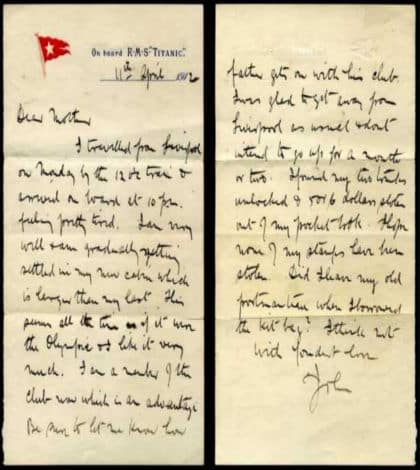 On board R.M.S. "TITANIC".
11th April 1912
Dear Mother
I travelled from Liverpool
on Monday by the 12 o/c train &
arrived on board at 10 pm.
feeling pretty tired. I am very
well & am gradually getting
settled in my new cabin which
is larger than my last. This
seems all the time as if it were
the Olympic & I like it very
much. I am a member of the
club now which is an advantage
Be sure to let me know how
father gets on with his club.
I was glad to get away from
Liverpool as usual & dont
intend to go up for a month
or two. I found my two trunks
unlocked & 5 or 6 dollars stolen
out of my pocket book. I hope
none of my stamps have been
stolen. Did I leave my old
portmanteau when I borrowed
the kit bag? I think not
With fondest love